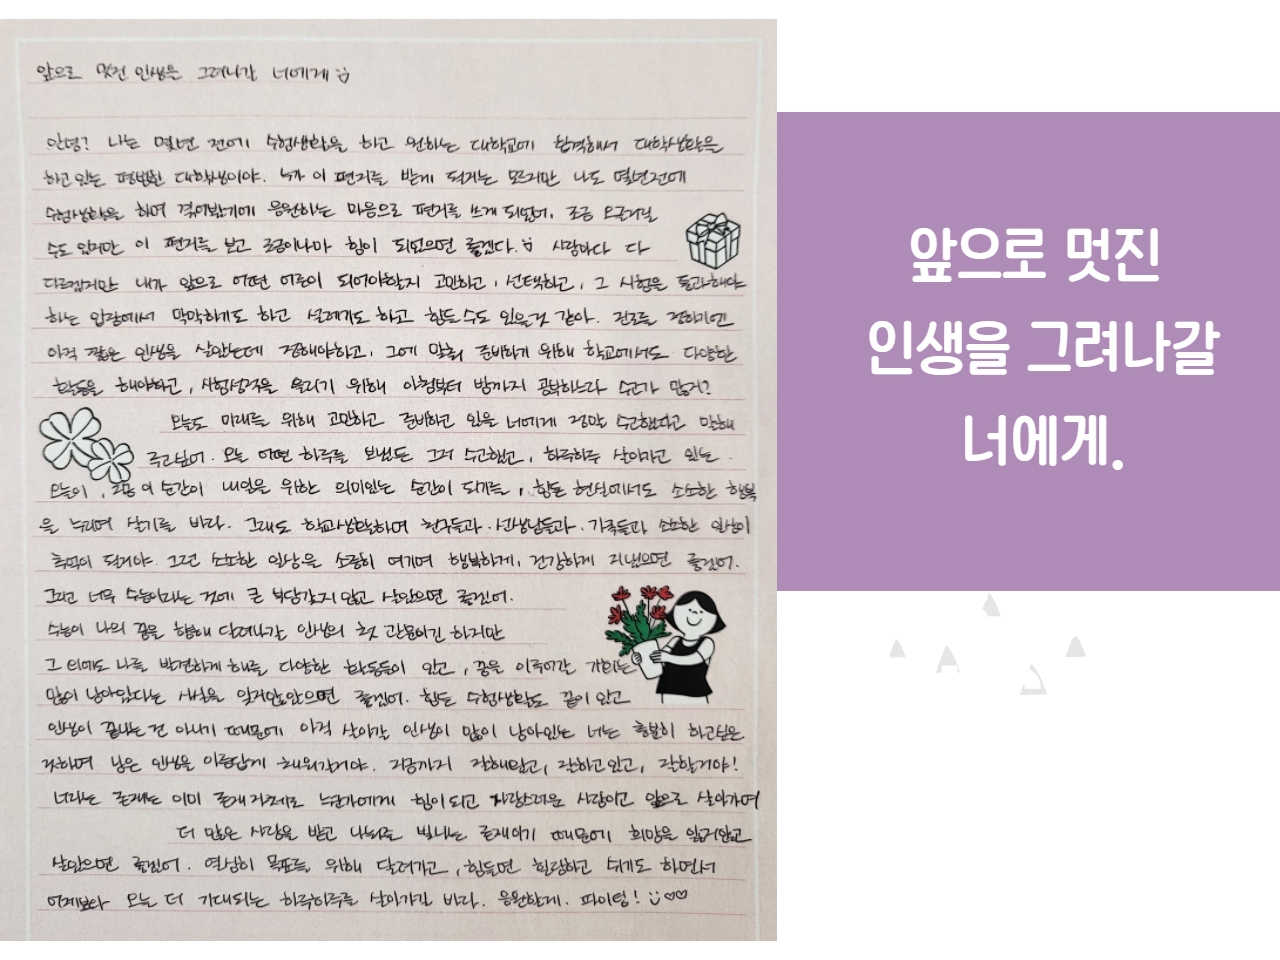 앞으로 멋진 인생을 그려나갈 너에게
안녕? 나는 몇년 전에 수험생활을 하고 원하는 대학교에 합격해서 대학생활을
하고 있는 평범한 대학생이야. 누가 이 편지를 받게 될지는 모르지만 나도 몇년전에
수험생활을 하며 겪어봤기에 응원하는 마음으로 편지를 쓰게 되었어. 조금 오글거릴
수도 있지만 이 편지를 보고 조금이나마 힘이 되었으면 좋겠다. 사람마다 다
다르겠지만 내가 앞으로 어떤 어른이 되어야할지 고민하고, 선택하고, 그 시험을 통과해야
하는 입장에서 막막하기도 하고 설레기도 하고 힘들 수도 있을것 같아. 진로를 정하기엔
아직 짧은 인생을 살았는데 정해야하고, 그에 맞춰 준비하기 위해 학교에서도 다양한
활동을 해야하고, 시험성적을 올리기 위해 아침부터 밤까지 공부하느라 수고가 많지?
오늘도 미래를 위해 고민하고 준비하고 있을 너에게 정말 수고했다고 말해
주고싶어. 오늘 어떤 하루를 보냈든 그저 수고했고, 하루하루 살아가고 있는
오늘이, 지금 이 순간이 내일을 위한 의미있는 순간이 되기를, 힘든 현실에서도 소소한 행복
을 누리며 살기를 바라. 그래도 학교생활하며 친구들과, 선생님들과, 가족들과 소소한 일상이
추억이 될거야. 그런 소소한 일상을 소중히 여기며 행복하게, 건강하게 지냈으면 좋겠어.
그런 너무 수능이라는 것에 큰 부담갖지 않고 살았으면 좋겠어.
수능이 나의 꿈을 향해 달려나갈 인생의 첫 관문이긴 하지만
그 외에도 나를 발견하게 해줄 다양한 활동들이 있고, 꿈을 이루어갈 기회는
많이 남아있다는 사실을 잊지않았으면 좋겠어. 힘든 수험생활도 끝이 있고
인생이 끝나는 건 아니기 때문에 아직 살아갈 인생이 많이 남아있는 너는 충분히 하고싶은
하며 남은 인생을 아름답게 채워갈거야. 지금까지 잘해왔고, 잘하고있고, 잘할거야!
너라는 존재는 이미 존재 자체로 누군가에게 힘이 되고 사랑스러운 사람이고 앞으로 살아가며
더 많은 사랑을 받고 나눠줄 빛나는 존재이기 때문에 희망을 잃지않고
살았으면 좋겠어. 열심히 목표를 위해 달려가고, 힘들면 힐링하고 쉬기도 하면서
어제보다 오늘 더 기대되는 하루하루를 살아가길 바라. 응원할게. 파이팅!
앞으로 멋진
인생을 그려나갈
너에게.